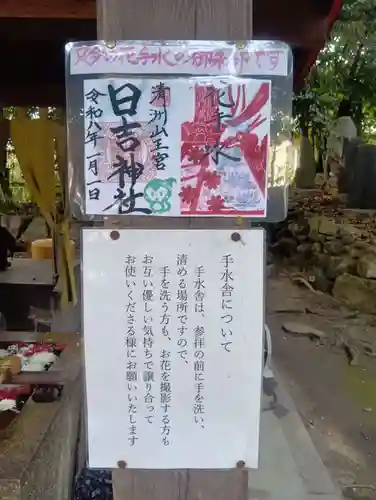 只今の花手水の御朱印です
清洲山王宮
日吉神社
令和八年一月一日
花手水
手水舎について
手水舎は、参拝の前に手を洗い、
清める場所ですので、
手を洗う方も、お花を撮影する方も
お互い優しい気持ちで譲り合って
お使いくださる様にお願いいたします